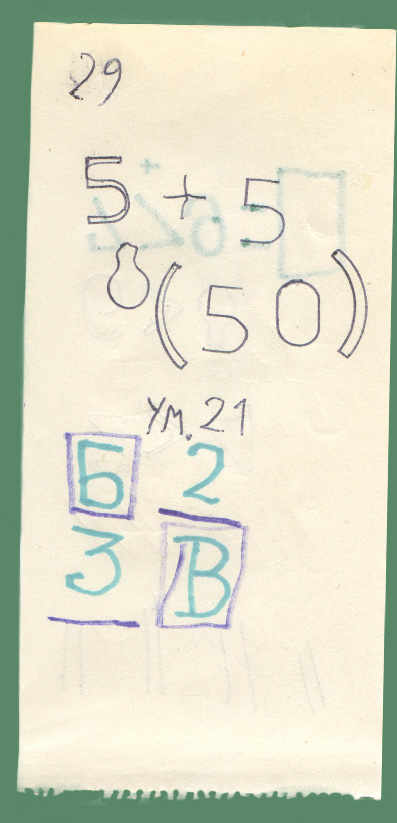 29
5 + 5
(50)
ум. 21
Б 2
3 В